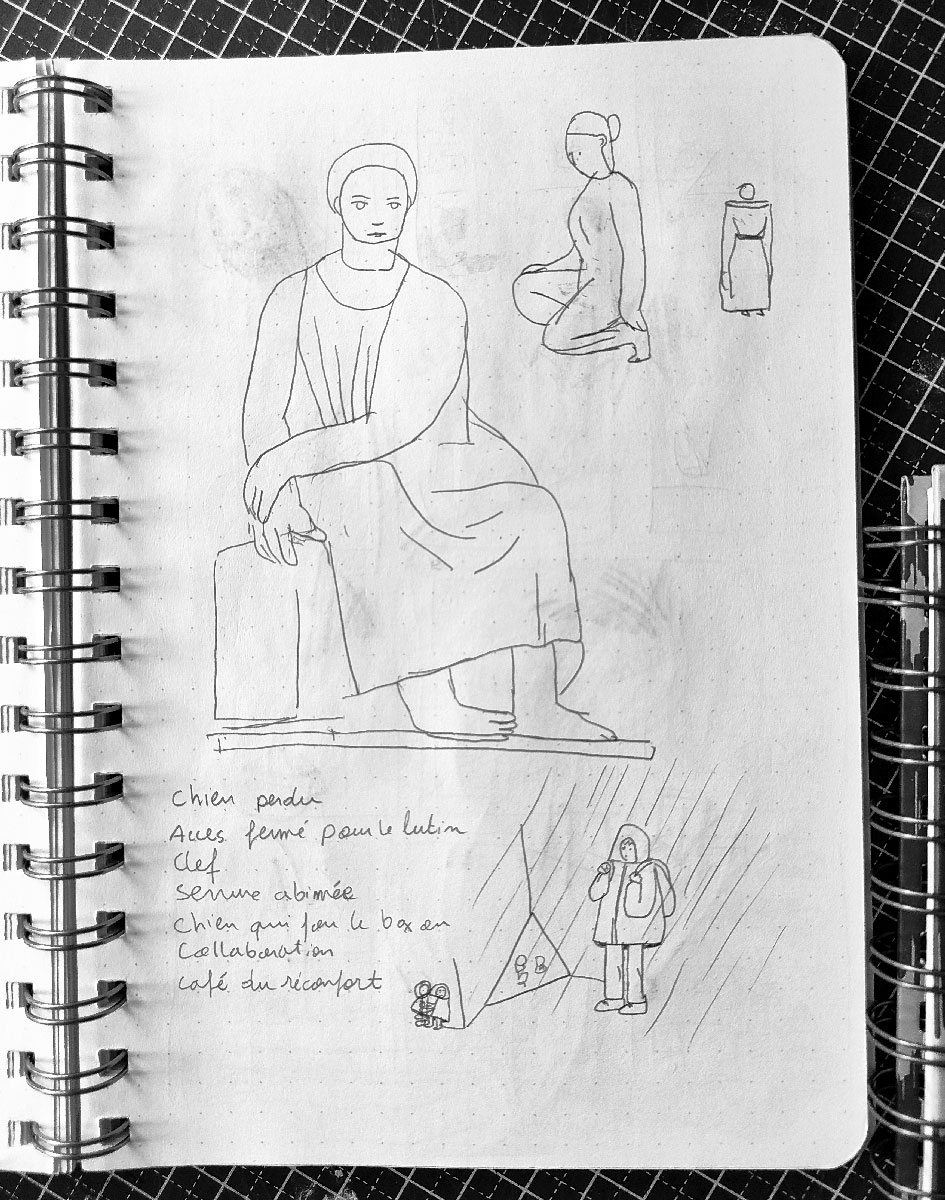 Chien perdu
Acces fermé pour le lutin
Clef
Serrure abimée
Chien qui fou le box on
Collaboration
Café du réconfort